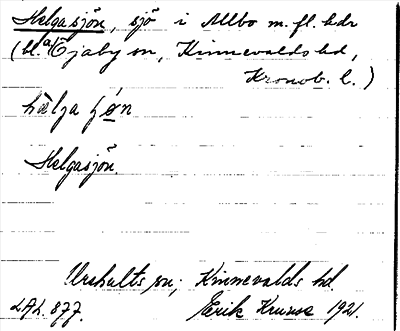 Helgasjön, sjö i Allbo m. fl. hdr
(bl. a. Öjaby sn, Kinnevalds hd,
Kronob. l.)
hælga ʃøn
Helgasjön.
Urshults sn, Kinnevalds hd.
LAL. 877. Erik Kruuse 1921.